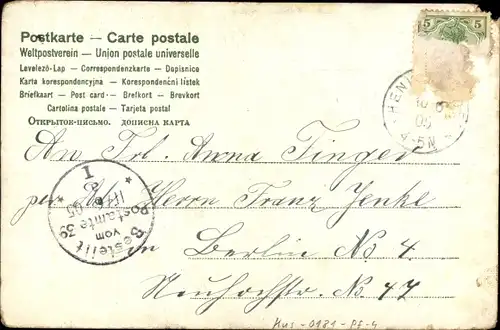 Postkarte — Carte postale
Weltpostverein — Union postale universelle
Levelező-Lap — Correspondenzkarte — Dopisnice
Karta korespondencyjna — Korespondenční lístek
Briefkaart — Post card — Brefkort — Brevkort
Cartolina postale — Tarjeta postal
ОТКРЫТОК-ПИСЬМО. ДОПИСНА КАРТА
5 5
4-5N
An Frl. Anna Finger
per Herrn Franz Jenke
in Berlin No 4.
No. 47
Bestellt
vom
Postamte 39
I
Hus-0481-Pf-4